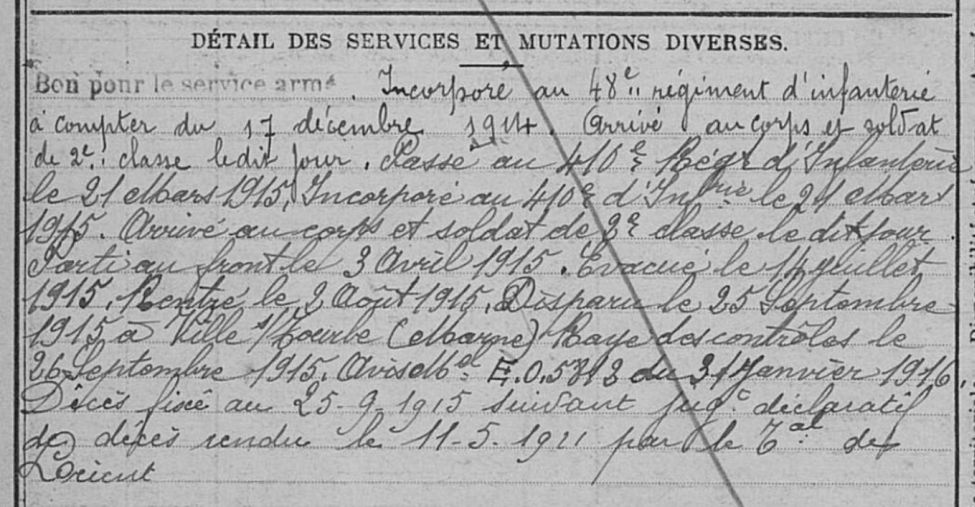 DÉTAIL DES SERVICES ET MUTATIONS DIVERSES.
Bon pour le service armé. Incorporé au 48e régiment d'infanterie
à compter du 17 décembre 1914. Arrivé au corps et soldat
de 2e classe ledit jour. Passé au 410e Régt d'Infanterie
le 21 Mars 1915, Incorporé au 410e d'Infrie le 21 Mars
1915. Arrivé au corps et soldat de 2e classe le dit jour.
Parti au front le 3 Avril 1915. Evacué le 14 Juillet
1915. Rentré le 2 Août 1915. Disparu le 25 Septembre
1915 à Ville s/Tourbe (Marne) Rayé des contrôles le
26 Septembre 1915. Avis Mel E.O.5812 du 31 Janvier 1916.
Décès fixé au 25-9-1915 suivant jugt déclaratif
de décès rendu le 11-5-1921 par le Tal de
Lorient